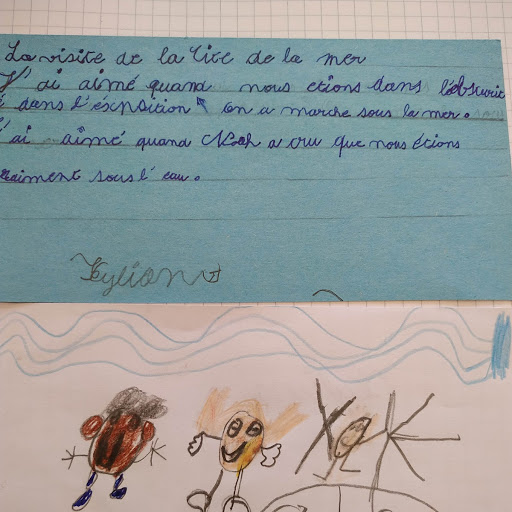 La visite de la Cité de la mer
J'ai aimé quand nous etions dans l'obscurit
é dans l'exposition on a marche sous la mer.
J'ai aimé quand Noah a cru que nous étions
vraiment sous l'eau.
Kylian